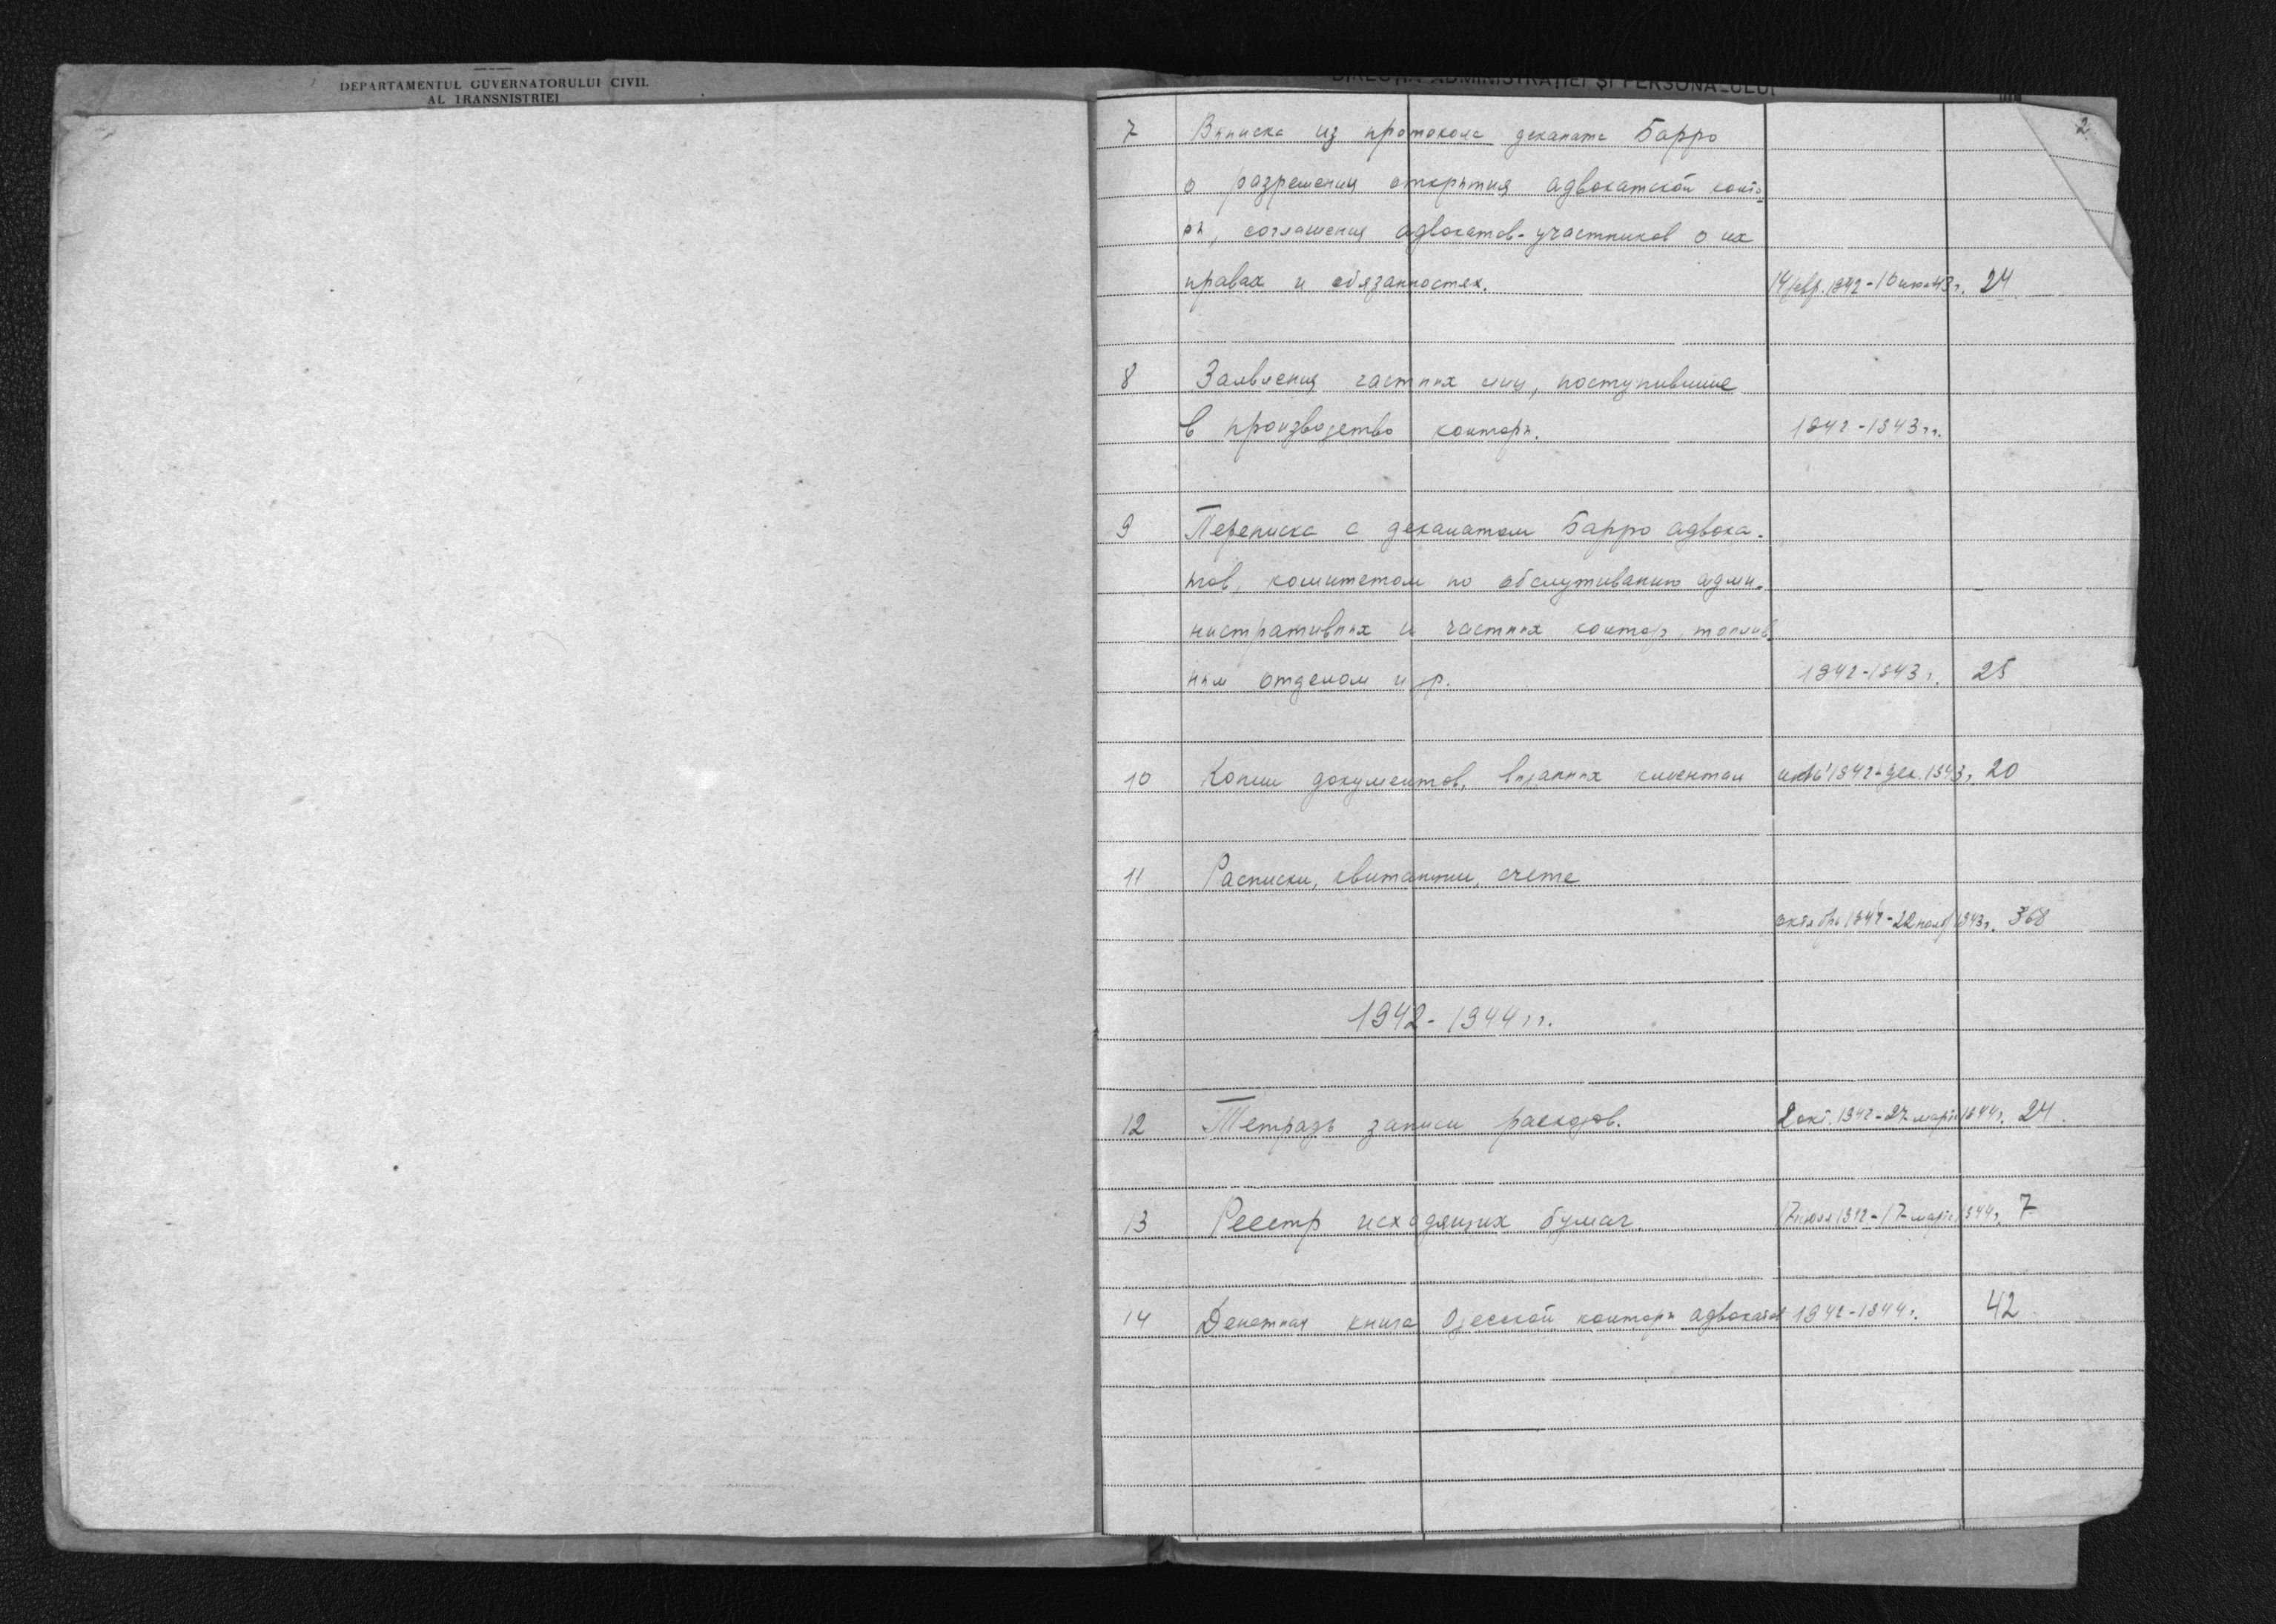 DEPARTAMENTUL GUVERNATORULUI CIVIL
AL TRANSNISTRIEI
DIRECȚIA ADMINISTRAȚIEI ȘI PERSONALULUI
2.
7 Выписка из протокола деканата Барро
о разрешении открытия адвокатской конто-
ры, соглашения адвокатов-участников о их
правах и обязанностях. 14 февр. 1942 - 43 г. 24
8 Заявления частных лиц, поступившие
в производство конторы. 1942-1943 гг.
9 Переписка с деканатом Барро адвока-
тов, комитетом по обслуживанию адми-
нистративных и частных контор, топлив-
ным отделом и др. 1942-1943 г. 25
10 Копии документов, выданных клиентам 1942 - дек. 1943 г. 20
11 Расписки, квитанции, счета
октябрь 1942 - 22 нояб 1943 г. 368
1942-1944 гг.
12 Тетрадь записи расходов. 2 окт. 1942 - 27 марта 1944 г. 24.
13 Реестр исходящих бумаг. 1942 - 17 марта 1944 г. 7
14 Денежная книга Одесской конторы адвокатов 1942-1944 г. 42